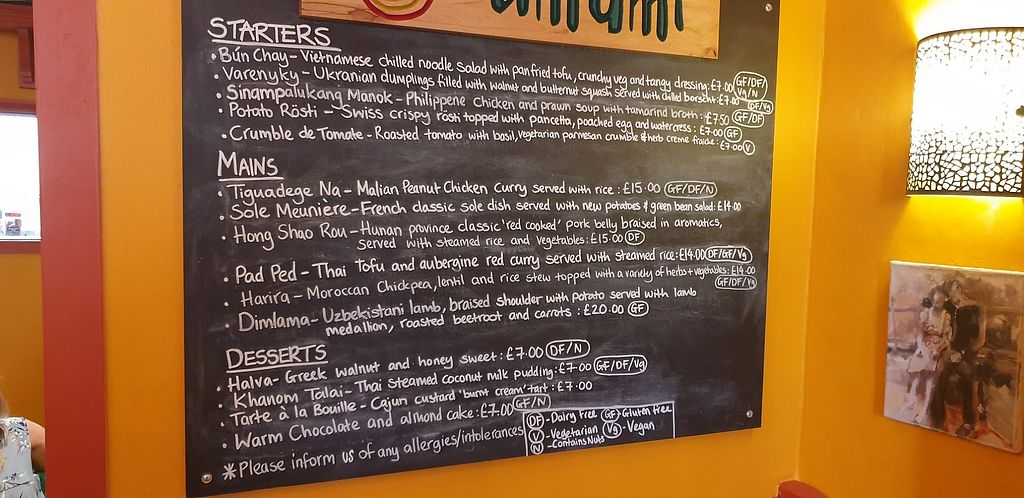 STARTERS
• Bún Chay - Vietnamese chilled noodle salad with pan fried tofu, crunchy veg and tangy dressing: £7.00 GF/DF/Vg/N
• Varenyky - Ukranian dumplings filled with walnut and butternut squash served with chilled borscht: £7.00 DF/Vg
• Sinampalukang Manok - Philippene Chicken and prawn soup with tamarind broth: £7.50 GF/DF
• Potato Rösti - Swiss crispy rösti topped with pancetta, poached egg and watercress: £7.00 GF
• Crumble de Tomate - Roasted tomato with basil, vegetarian parmesan crumble & herb creme fraiche: £7.00 V
MAINS
• Tiguadege Na - Malian Peanut Chicken Curry served with rice: £15.00 GF/DF/N
• Sole Meunière - French classic sole dish served with new potatoes & green bean salad: £14.00
• Hong Shao Rou - Hunan province classic 'red cooked' pork belly braised in aromatics,
served with steamed rice and vegetables: £15.00 DF
• Pad Ped - Thai Tofu and aubergine red curry served with steamed rice: £14.00 DF/GF/Vg
• Harira - Moroccan Chickpea, lentil and rice stew topped with a variety of herbs + vegetables: £14.00
GF/DF/Vg
• Dimlama - Uzbekistani lamb, braised shoulder with potato served with lamb
medallion, roasted beetroot and carrots: £20.00 GF
DESSERTS
• Halva - Greek walnut and honey sweet: £7.00 DF/N
• Khanom Talai - Thai steamed coconut milk pudding: £7.00 GF/DF/Vg
• Tarte à la Bouille - Cajun custard 'burnt cream' tart: £7.00
• Warm Chocolate and almond cake: £7.00 GF/N
*Please inform us of any allergies/intolerances
DF - Dairy free GF - Gluten free
V - Vegetarian Vg - Vegan
N - Contains Nuts